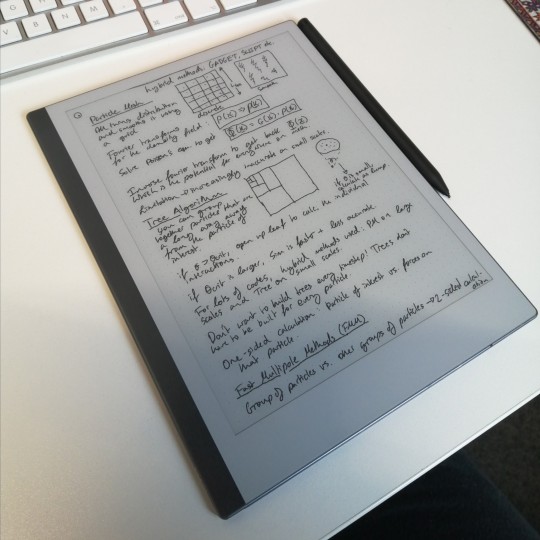 hybrid methods. GADGET, SWIFT etc.
② Particle Mesh
PM turns distribution
and smooths it using
a grid
Fourier transforms
for the density field
Solve Poisson's eqn to get
density
ρ(x) ⇒ ρ(k)
Φ(k) = G(k) · ρ(k)
Inverse fourier transform to get back Φ(x)
which is the potential for everything in area
limitation → increasingly inaccurate on small scales.
Tree Algorithm
You can group
together particles that are
a long way away
from the particle of
interest.
if θ > θcrit, open up leaf to calc. the individual
interactions.
if θ small,
if θcrit is larger, sim is faster + less accurate
For lots of codes, hybrid methods used. PM on large
scales and Tree on small scales.
Don't want to build trees every timestep! Trees don't
have to be built for every particle.
One-sided calculation: particle of interest vs. forces on
that particle.
Fast Multipole Methods (FMM)
Group of particles vs. other groups of particles → 2-sided calculation